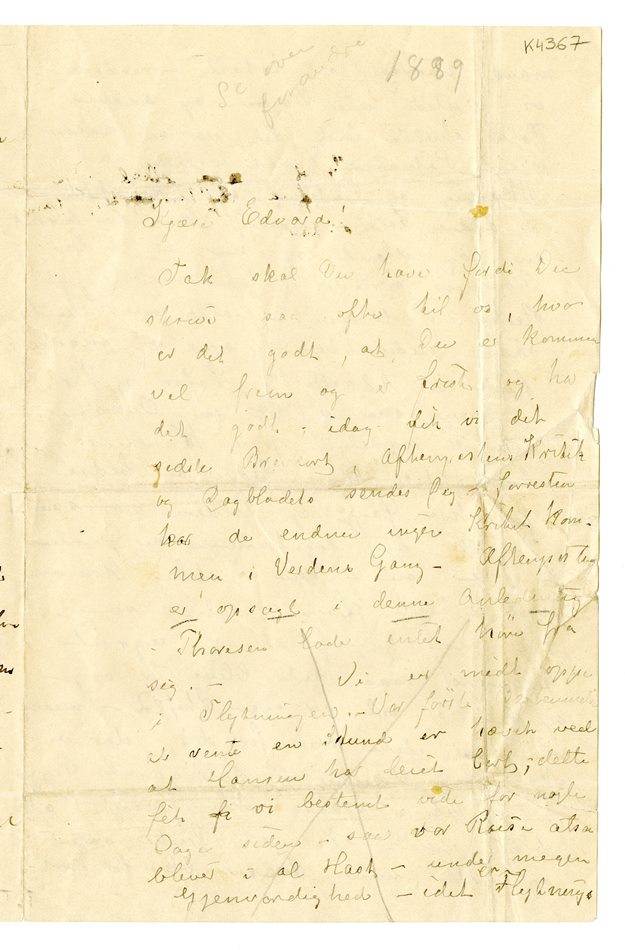 K4367
Se over
1889
Kjære Edvard!
Tak skal Du have fordi Du
skriver saa ofte til os, hvor
er det godt, at Du er kommen
vel frem og er frisk og ha
det godt – idag fik vi det
sidste Brevkort, Aftenpostens Kritik
og Dagbladets sendes Deg – forresten
har de endnu ingen Kritik kom-
men i Verdens Gang – Aftenposten
er opsagt i denne Anledning
– Thoresen lade intet høre fra
sig. – Vi er midt oppe
i Flythningen. – Vor første
at vente en Stund er hævet ved
at Hansen har leiet bort; dette
fik vi bestemt vide for nogle
Dage siden – saa vor Reise altsaa
blever i al Hast – under megen
Gjenvordighed – idet er Flythnings